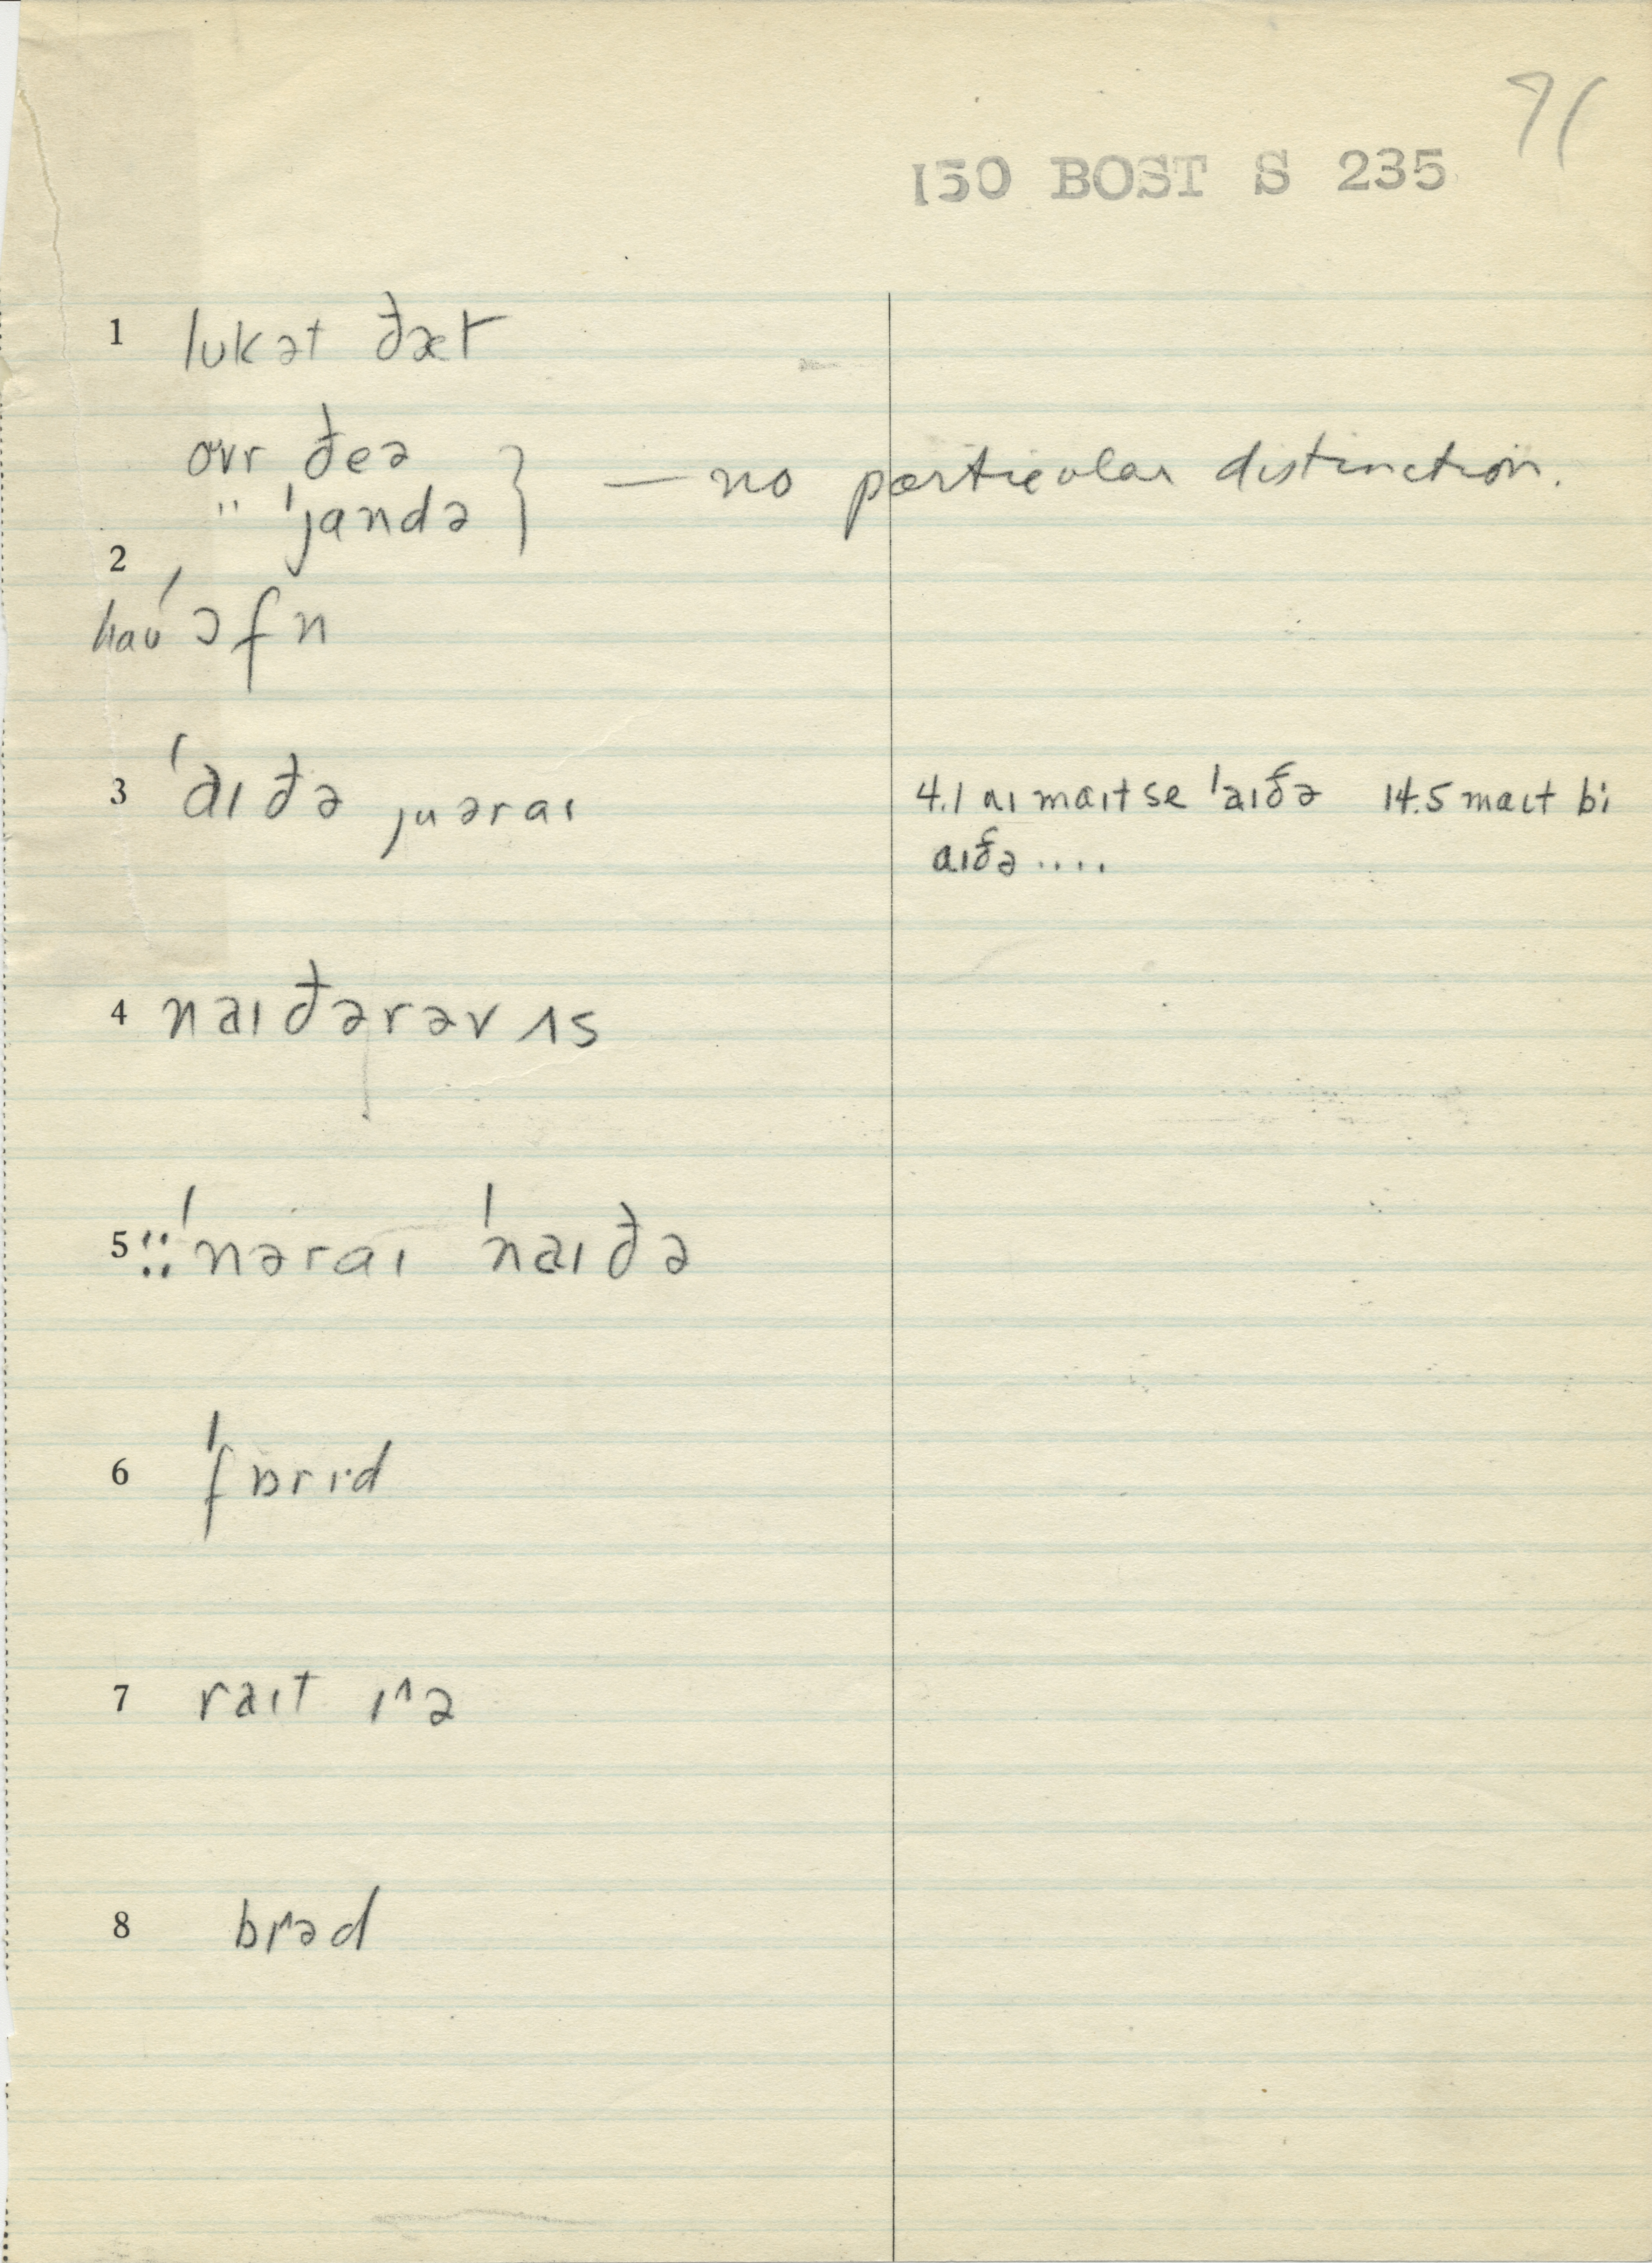 71
150 BOST S 235
1 lʊkət ðæt
oʊvr ðeə
" ˈjandə } — no particular distinction.
2
haʊ ˈɔfn
3 ˈaɪðə juəraɪ
4.1 aɪ maɪt se ˈaɪðə 14.5 maɪt bi
aɪðə ....
4 naɪðərəv ʌs
5 :: ˈnəraɪ ˈnaɪðə
6 ˈfɒrɪd
7 raɪt ɪ^ə
8 brɪ^əd